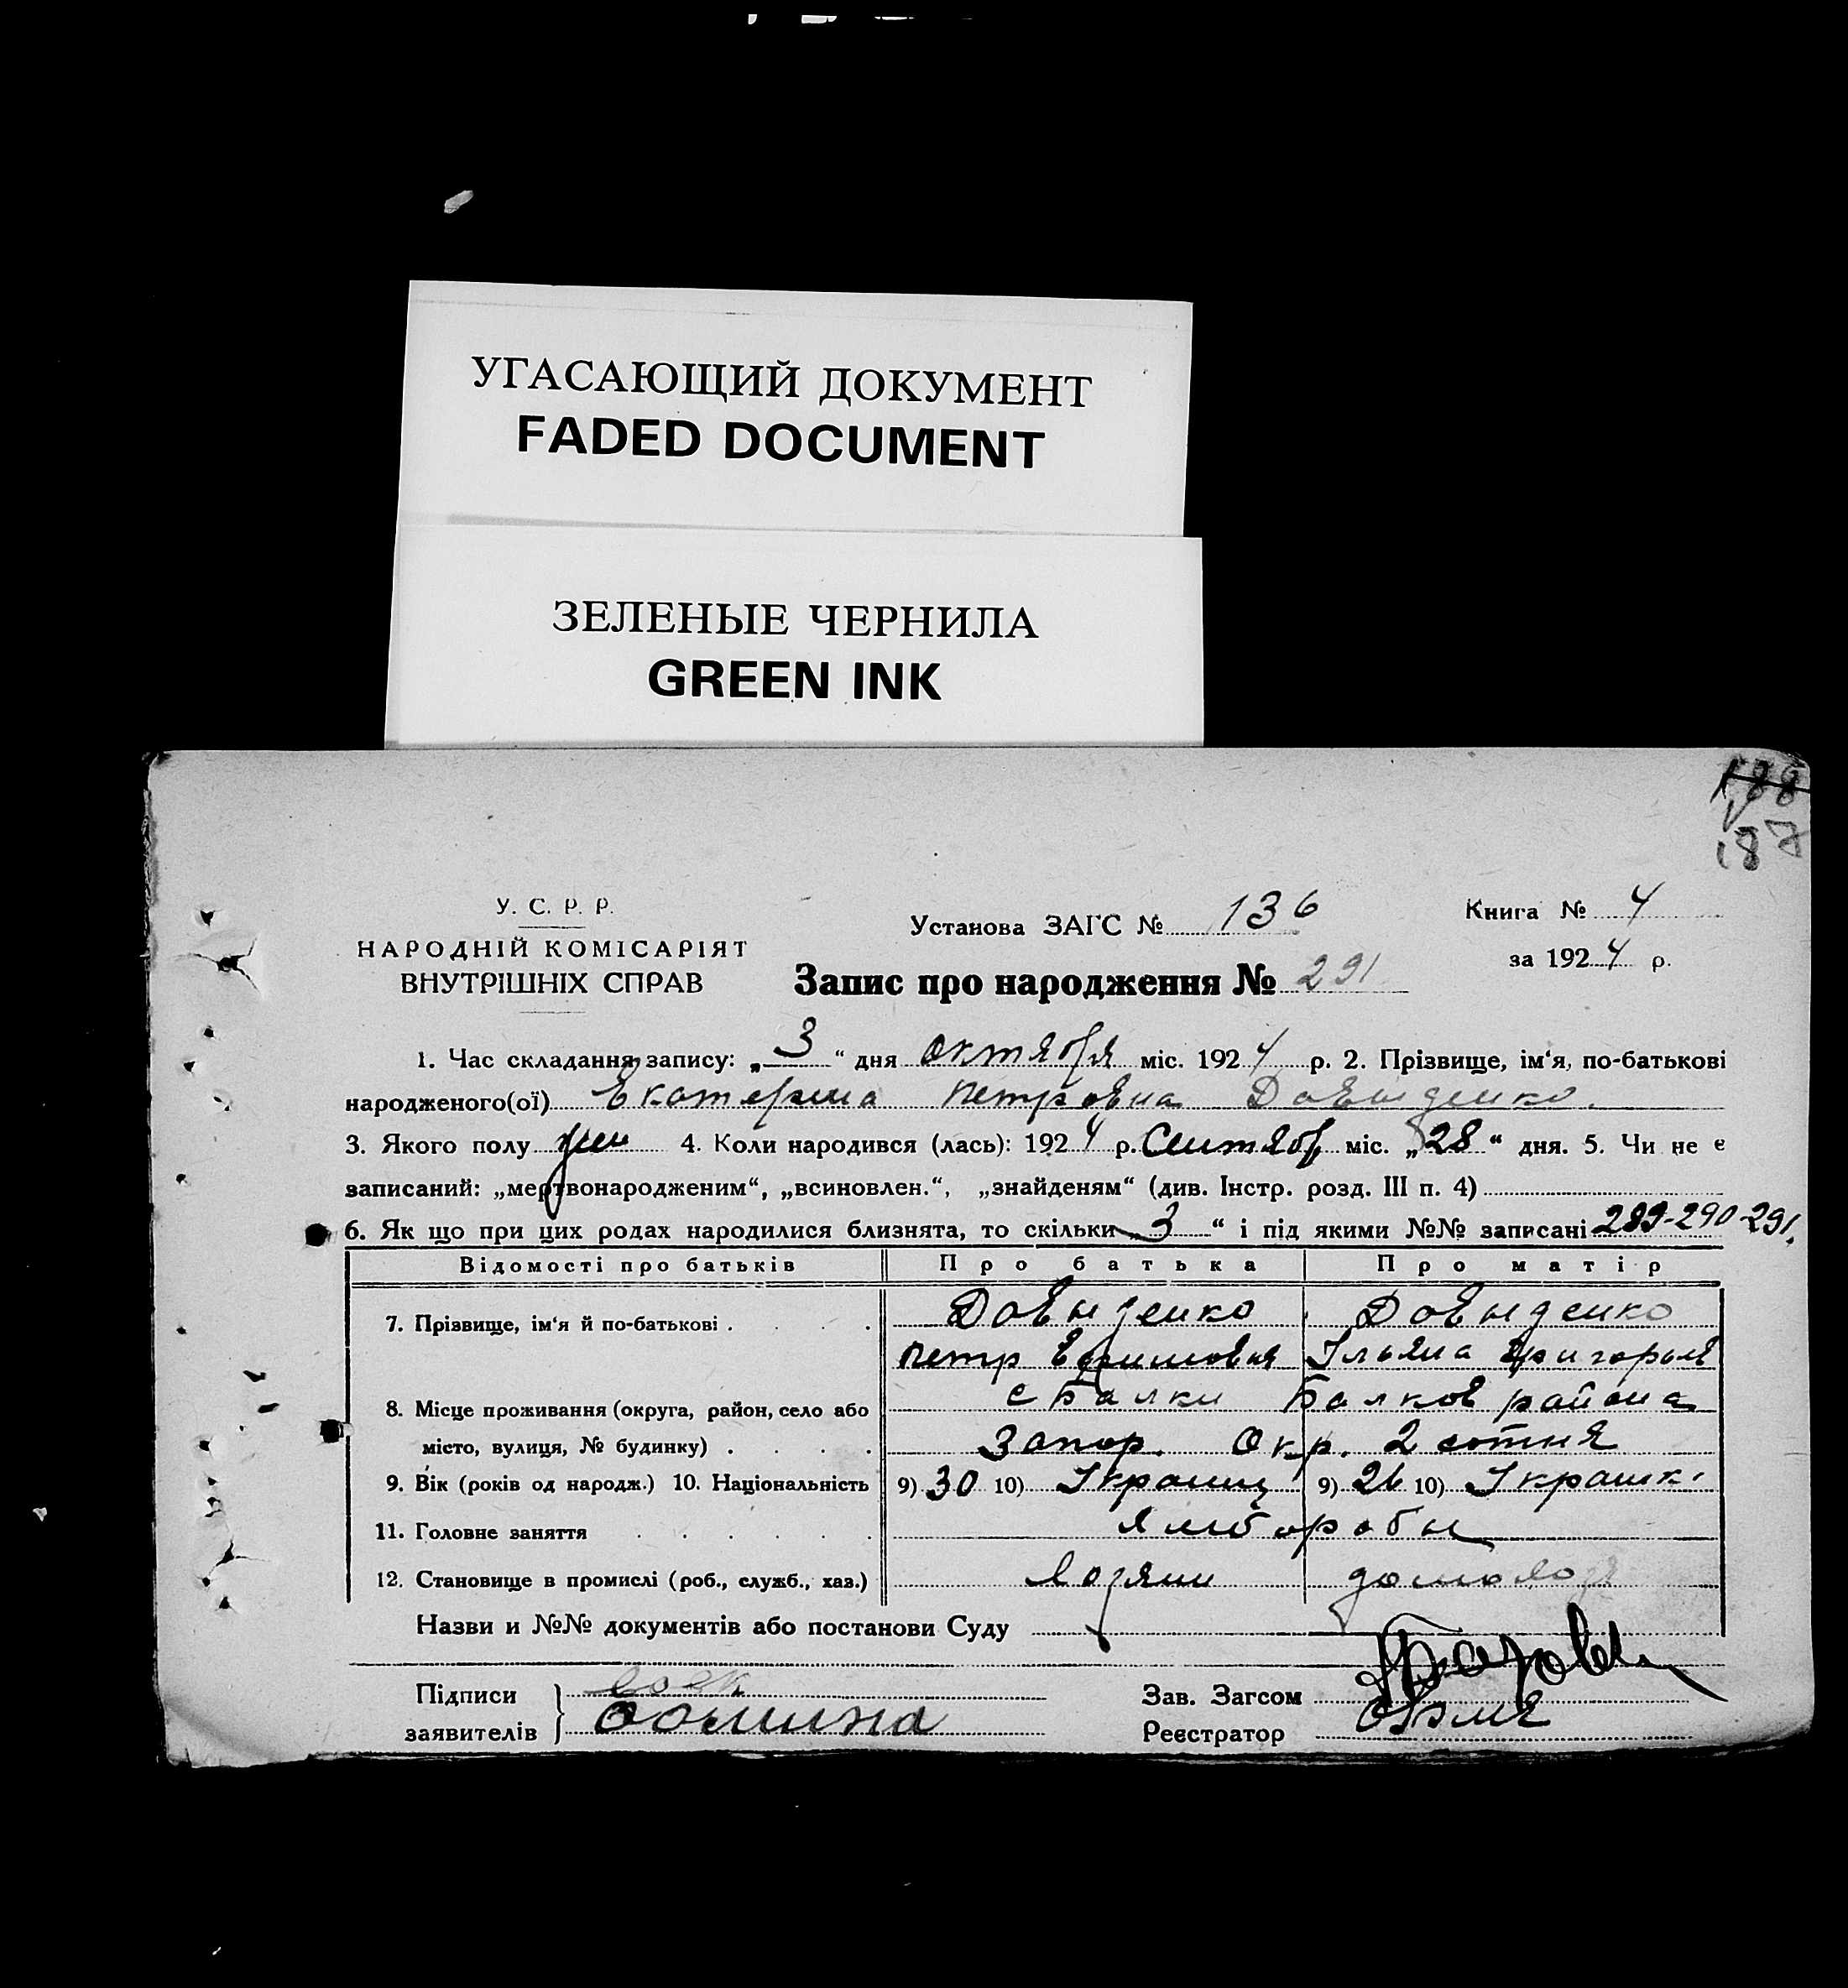 УГАСАЮЩИЙ ДОКУМЕНТ
FADED DOCUMENT
ЗЕЛЕНЫЕ ЧЕРНИЛА
GREEN INK
188
187
У. С. Р. Р.
НАРОДНІЙ КОМІСАРІЯТ
ВНУТРІШНІХ СПРАВ
Установа ЗАГС № 136
Книга № 4
за 1924 р.
Запис про народження № 291
1. Час складання запису: „3“ дня октября міс. 1924 р. 2. Прізвище, ім‘я, по-батькові
народженого(ої) Екатерина Петровна Давыденко.
3. Якого полу жен 4. Коли народився (лась): 1924 р. Сентябр міс. „28“ дня. 5. Чи не є
записаний: „мертвонародженим“, „всиновлен.“, „знайденям“ (див. Інстр. розд. III п. 4)
6. Як що при цих родах народилися близнята, то скільки „3“ і під якими №№ записані 289-290-291.
Відомості про батьків Про батька Про матір
7. Прізвище, ім‘я й по-батькові . . . . Давыденко Давыденко
Петр Ефимовия Ульяна Григорьев
8. Місце проживання (округа, район, село або с Балки Балков района
місто, вулиця, № будинку) . . . . Запор. Окр. 2 сотня
9. Вік (років од народж.) 10. Національність 9) 30 10) Украинц 9) 26 10) Украинк.
11. Головне заняття . . . . . . Хлебаробы
12. Становище в промислі (роб., служб., хаз.) Хозяин домохозя
Назви и №№ документів або постанови Суду
Підписи
заявителів
Зав. Загсом
Реєстратор